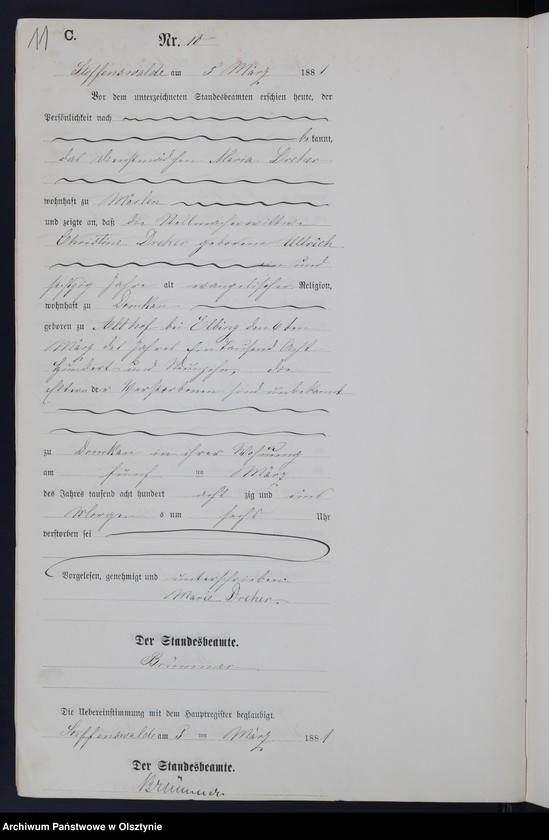 11 C.
Nr. 10
Steffenswalde am 5 März 1881
Vor dem unterzeichneten Standesbeamten erschien heute, der
Persönlichkeit nach
bekannt,
das Dienstmädchen Maria Dreher
wohnhaft zu
und zeigte an, daß die
Christine Dreher geborene Ullrich
und
sechszig Jahre alt evangelischer Religion,
wohnhaft zu Domkau
geboren zu Althof bei Elbing den 6ten
März des Jahres Ein Tausend Acht
Hundert und Neunzehn, die
Eltern der Verstorbenen sind unbekannt
zu Domkau in ihrer Wohnung
am fünf ten März
des Jahres tausend acht hundert acht zig und eins
Morgen s um sechs Uhr
verstorben sei
Vorgelesen, genehmigt und unterschrieben.
Marie Dreher.
Der Standesbeamte.
Brümmer
Die Uebereinstimmung mit dem Hauptregister beglaubigt.
Steffenswalde am 5 ten März 1881
Der Standesbeamte.
Brümmer.
Archiwum Państwowe w Olsztynie